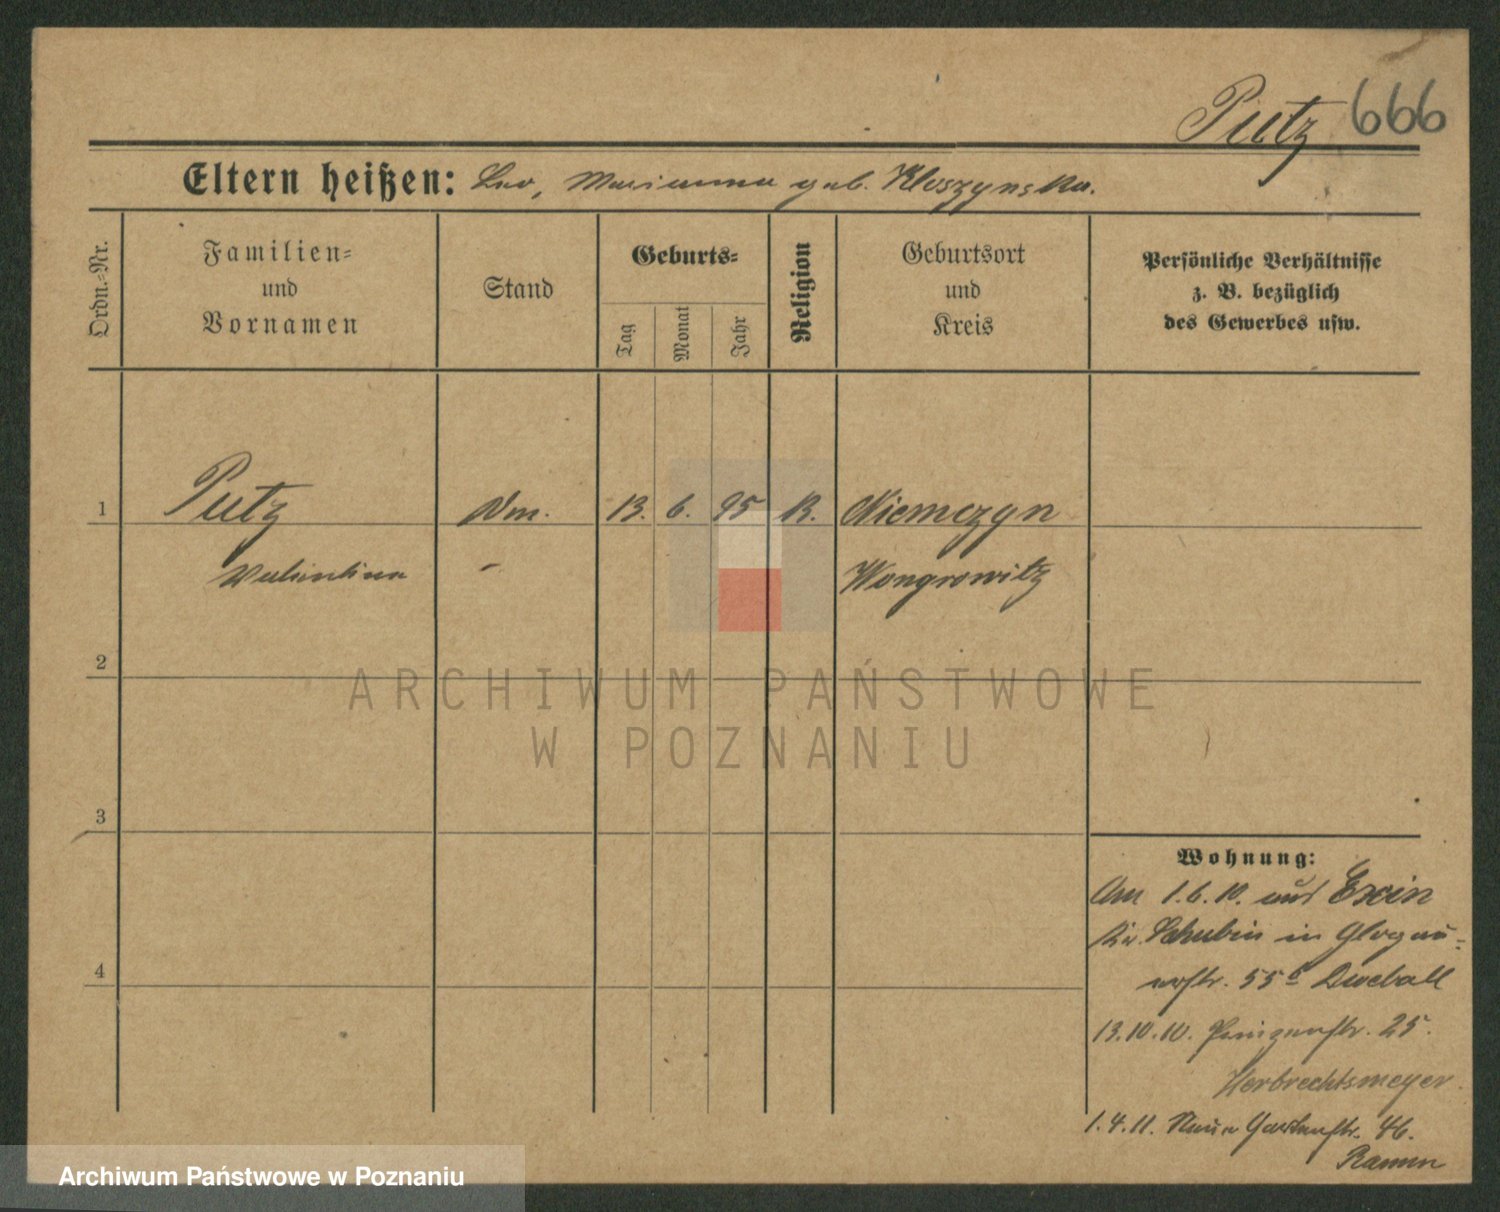 Putz 666
Eltern heißen: Leo, Marianna geb. Kloszynska.
Ordn.=Nr.
Familien=
und
Vornamen
Stand
Geburts=
Tag
Monat
Jahr
Religion
Geburtsort
und
Kreis
Persönliche Verhältnisse
z. B. bezüglich
des Gewerbes usw.
1 Putz 13. 6. 95 K. Niemczyn
Valentina - Wongrowitz
2
3
4
Wohnung:
Am 1.6.10. aus Exin
Kr. Schubin in Glogau=
erstr. 55
13.10.10. Prinzenstr. 25.
Herbrechtsmeyer
1.4.11. Neue Gartenstr. 46.
Ramm
ARCHIWUM PAŃSTWOWE
W POZNANIU
Archiwum Państwowe w Poznaniu